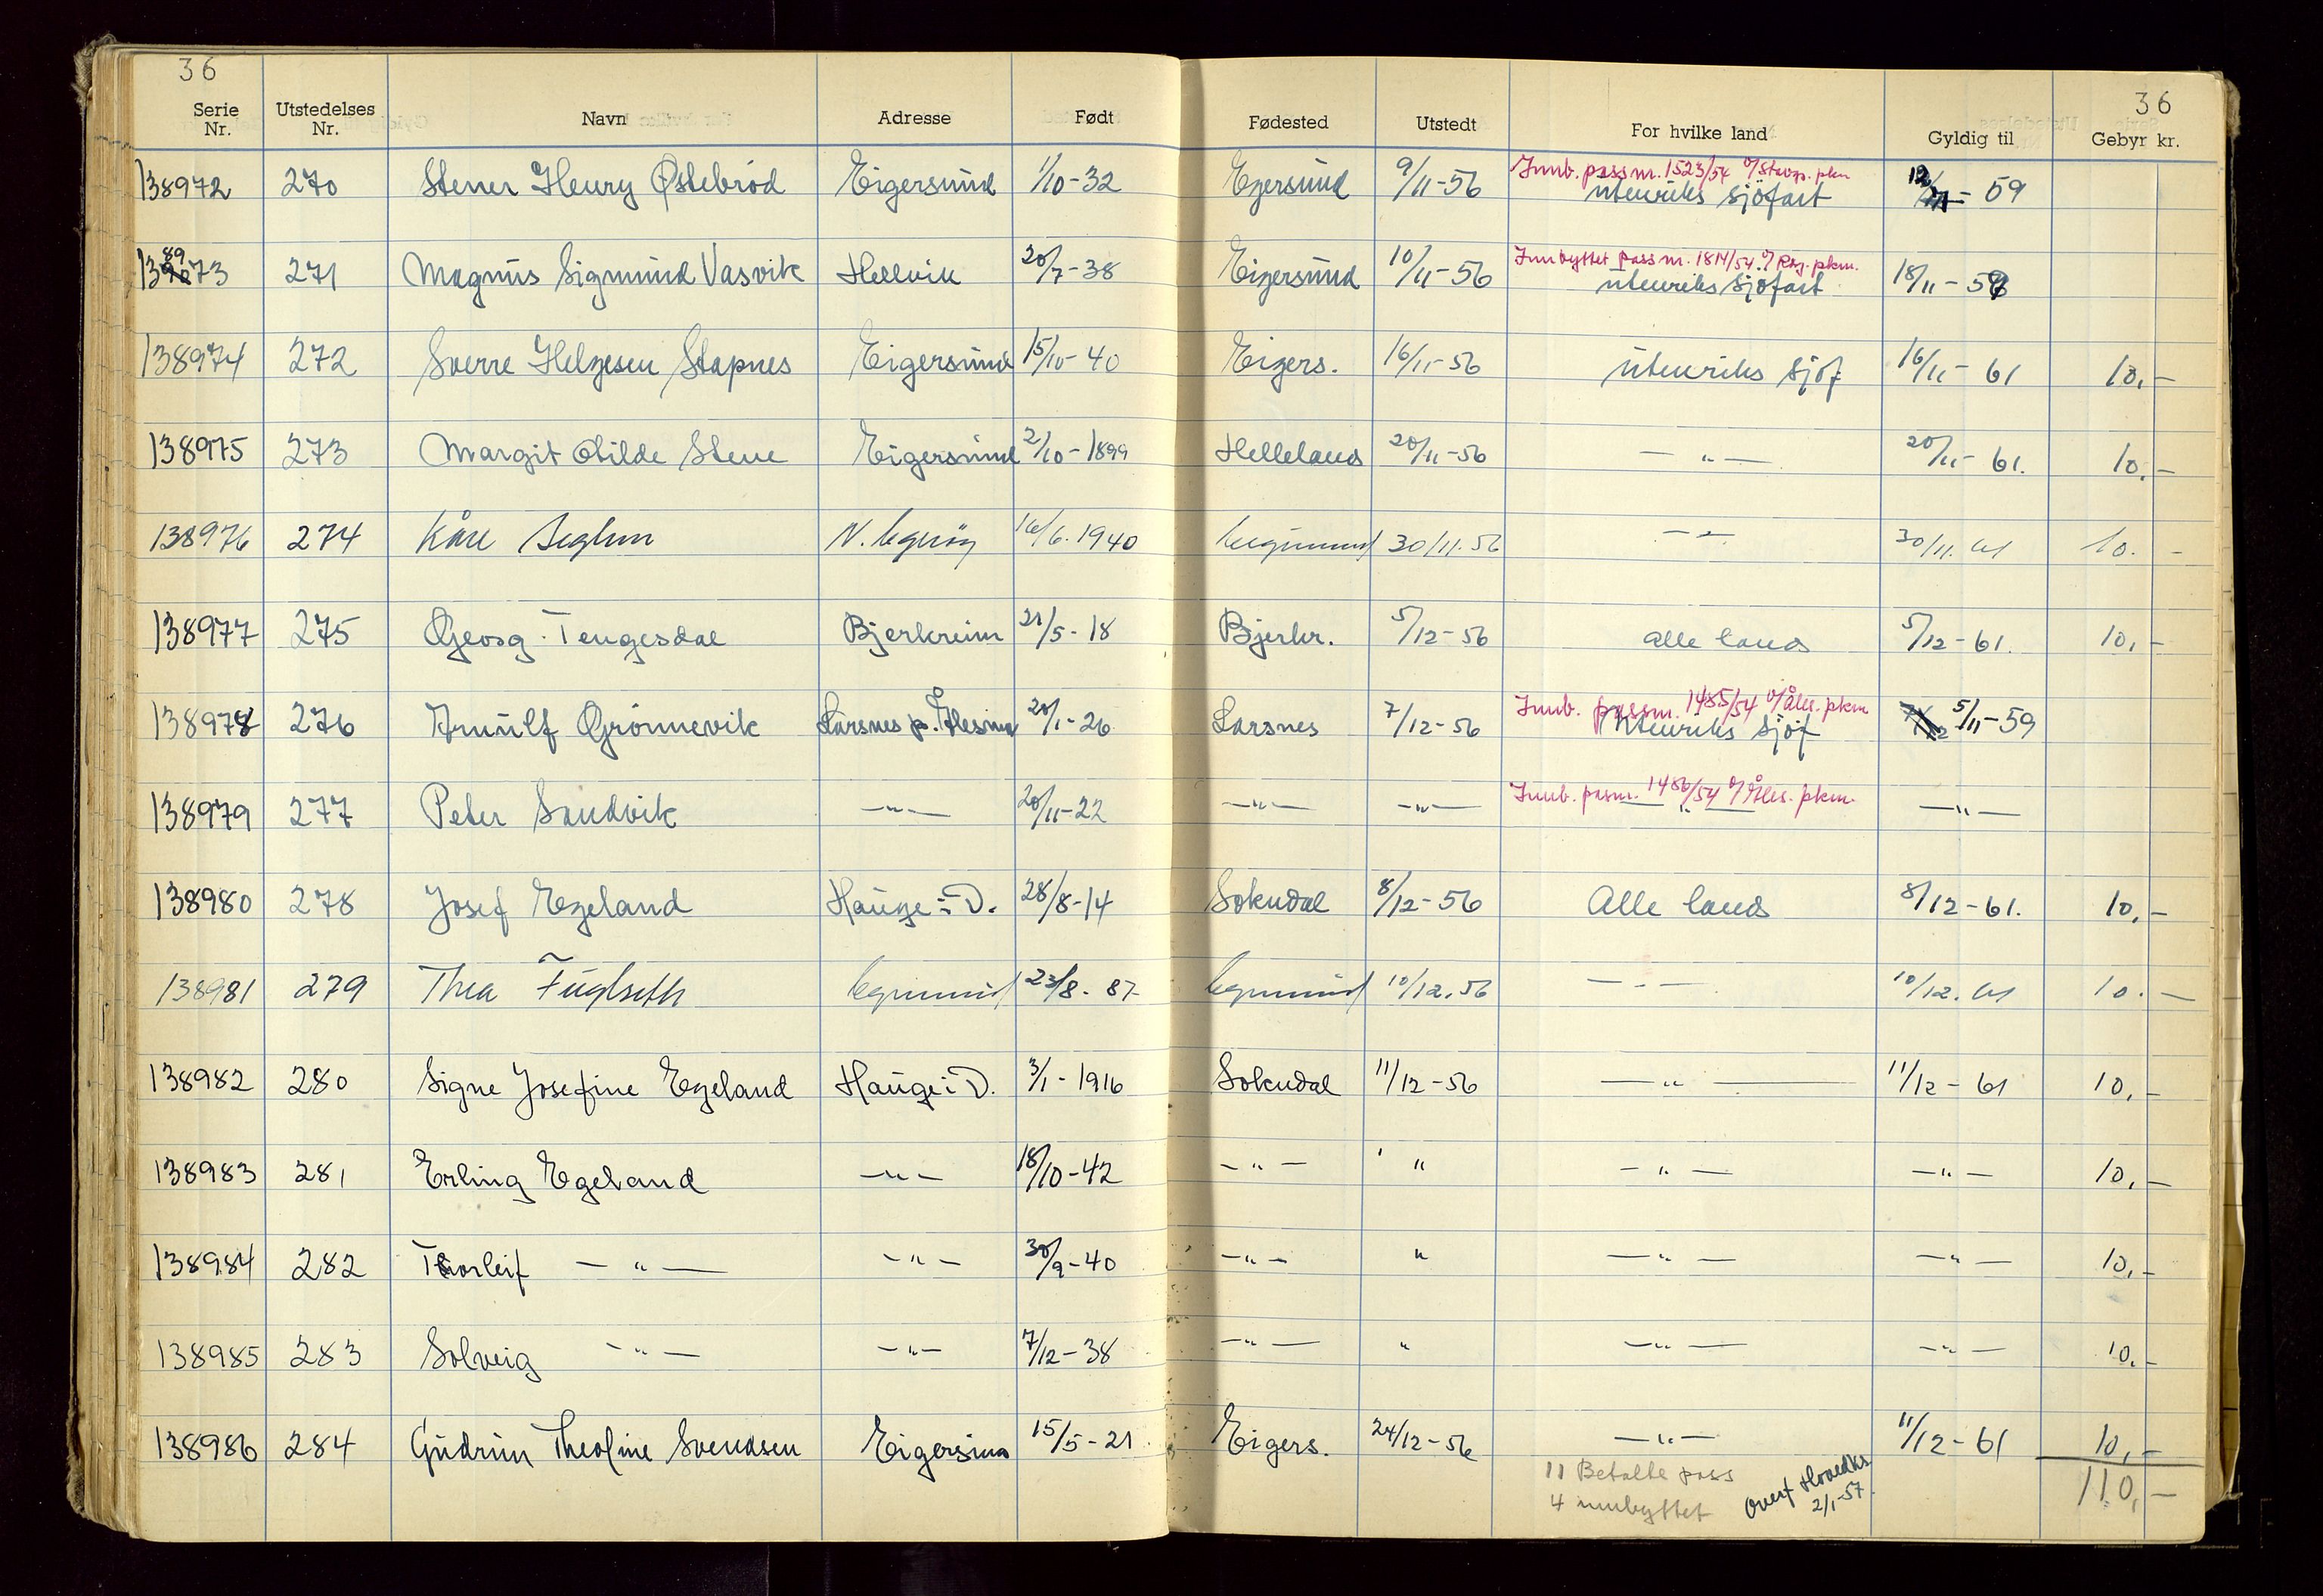 36 36
Serie Nr. Utstedelses Nr. Navn Adresse Født Fødested Utstedt For hvilke land Gyldig til Gebyr kr.
Innb. pass nr. 1523/54 v/Stavgr. pkm
138972 270 Stener Henry Østebröd Eigersund 1/10-32 Egersund 9/11-56 utenriks sjöfart 12/11-59
Innbyttet pass nr. 1814/54 v/ Rog. pkm.
138973 271 Magnus Sigmund Vasvik Hellvik 20/7-38 Eigersund 10/11-56 utenriks sjöfart 18/11-59
138974 272 Sverre Helgesen Stapnes Eigersund 15/10-40 Eigers. 16/11-56 utenriks sjöf 16/11-61 10,-
138975 273 Margit Otilde Stene Eigersund 2/10-1899 Helleland 20/11-56 -"- 20/11-61. 10.-
138976 274 Kåre 16/6.1940 30/11.56 -"- 30/11.61 10.-
138977 275 Georg Tengesdal Bjerkreim 21/5-18 Bjerkr. 5/12-56 alle land 5/12-61. 10,-
Innb. passnr. 1485/54 v/Åles. pkm
138978 276 Arnulf Grönnevik Larsnes p. Ålesund 20/1-26 Larsnes 7/12-56 Utenriks sjöf 5/11-59
Innb. pasnr. 1486/54 v/Åles. pkm.
138979 277 Peter Sandvik -"- 20/11-22 -"- -"- -"- -"-
138980 278 Josef Egeland Hauge i D. 28/8-14 Sokndal 8/12-56 Alle land 8/12-61. 10,-
138981 279 Thea Fuglseth Egersund 23/8-87 Egersund 10/12.56 -"- 10/12.61 10.-
138982 280 Signe Josefine Egeland Hauge i D. 3/1-1916 Sokndal 11/12-56 -"- 11/12-61 10,-
138983 281 Erling Egeland -"- 18/10-42 -"- " -"- -"- 10,-
138984 282 Thorleif -"- -"- 30/9-40 -"- " -"- -"- 10,-
138985 283 Solveig -"- -"- 7/12-38 -"- " -"- -"- 10,-
138986 284 Gudrun Theoline Svendsen Eigersund 15/5-21 Eigers. 24/12-56 -"- 11/12-61 10,-
11 Betalte pass
4 innbyttet Overf 2/1-57. 110,-